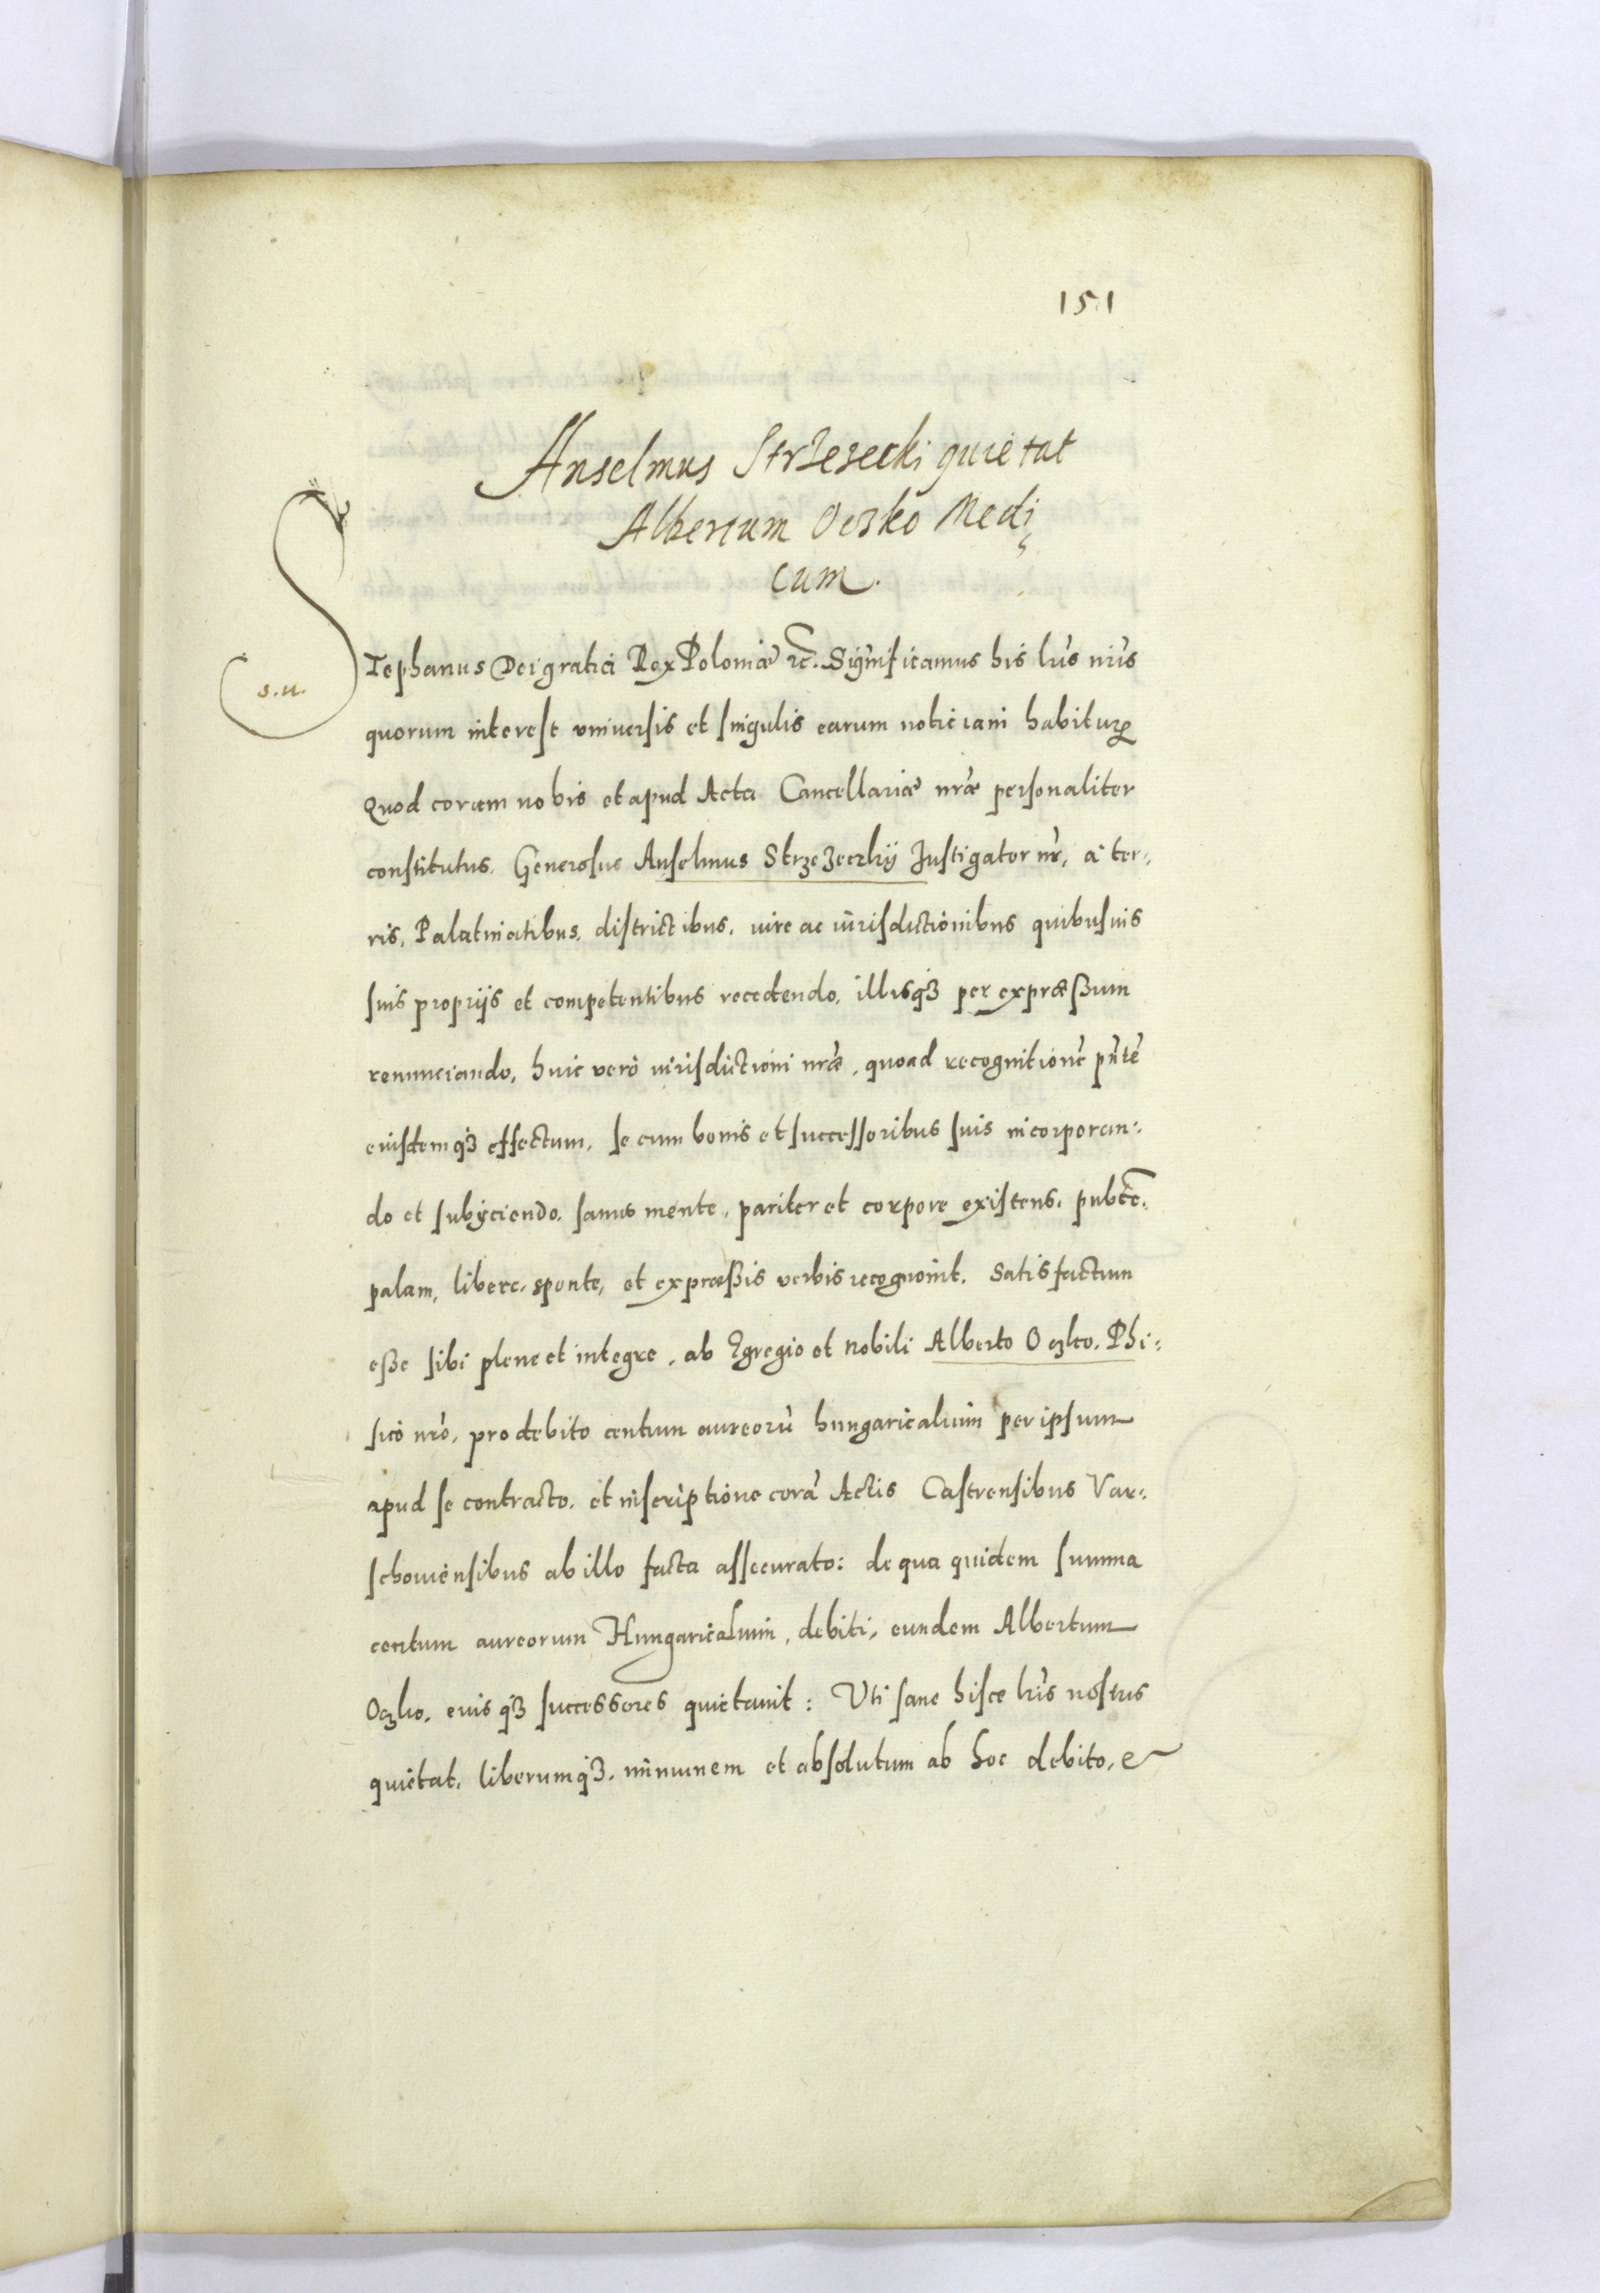 151
Anselmus Strzezecki quietat
Albertum Oczko Medi
cum.
s. n.
Stephanus Dei gratia Rex Poloniæ etc. Significamus his lr̃is nr̃is
quorum interest vniuersis et singulis earum noticiam habituris
Quod coram nobis et apud Acta Cancellariæ nr̃æ personaliter
constitutus. Generosus Anselmus Strzezeczkÿ Instigator nr̃, a ter:,
ris, Palatinatibus, districtibus, iure ac iurisdictionibus quibusuis
suis proprijs et competentibus recedendo, illisq3 per expræßum
renunciando, huic vero iurisdictioni nr̃æ, quoad recognitionẽ pñtẽ
eiusdemq3 effectum, se cum bonis et successoribus suis incorporan:
do et subÿciendo. sanus mente, pariter et corpore existens, publcẽ,
palam, libere, sponte, et expræßis verbis recognouit. Satisfactum
eße sibi plene et integre, ab Egregio et Nobili Alberto Oczko, Phi:
sico nr̃o, pro debito centum aureorũ hungaricalium per ipsum
apud se contracto, et inscriptione corã Actis Castrensibus Var:
schouiensibus ab illo facta assecurato: de qua quidem summa
centum aureorum Hungaricalium, debiti, eundem Albertum
Oczko, eius q3 successores quietauit: Vti sane hisce lr̃is nostris
quietat, liberumq3, immunem et absolutum ab hoc debito, e